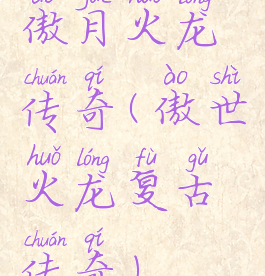 ào yuè huǒ lóng
傲月火龙
chuán qí ào shì
传奇(傲世
huǒ lóng fù gǔ
火龙复古
chuán qí
传奇)